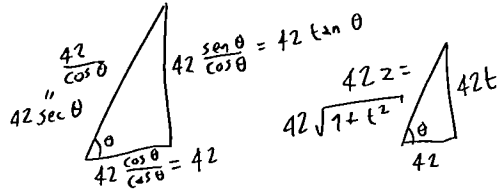 42
cos θ
"
42 sec θ
42 sen θ / cos θ = 42 tan θ
θ
42 cos θ / cos θ = 42
42 z =
42 √1 + t²
42t
θ
42